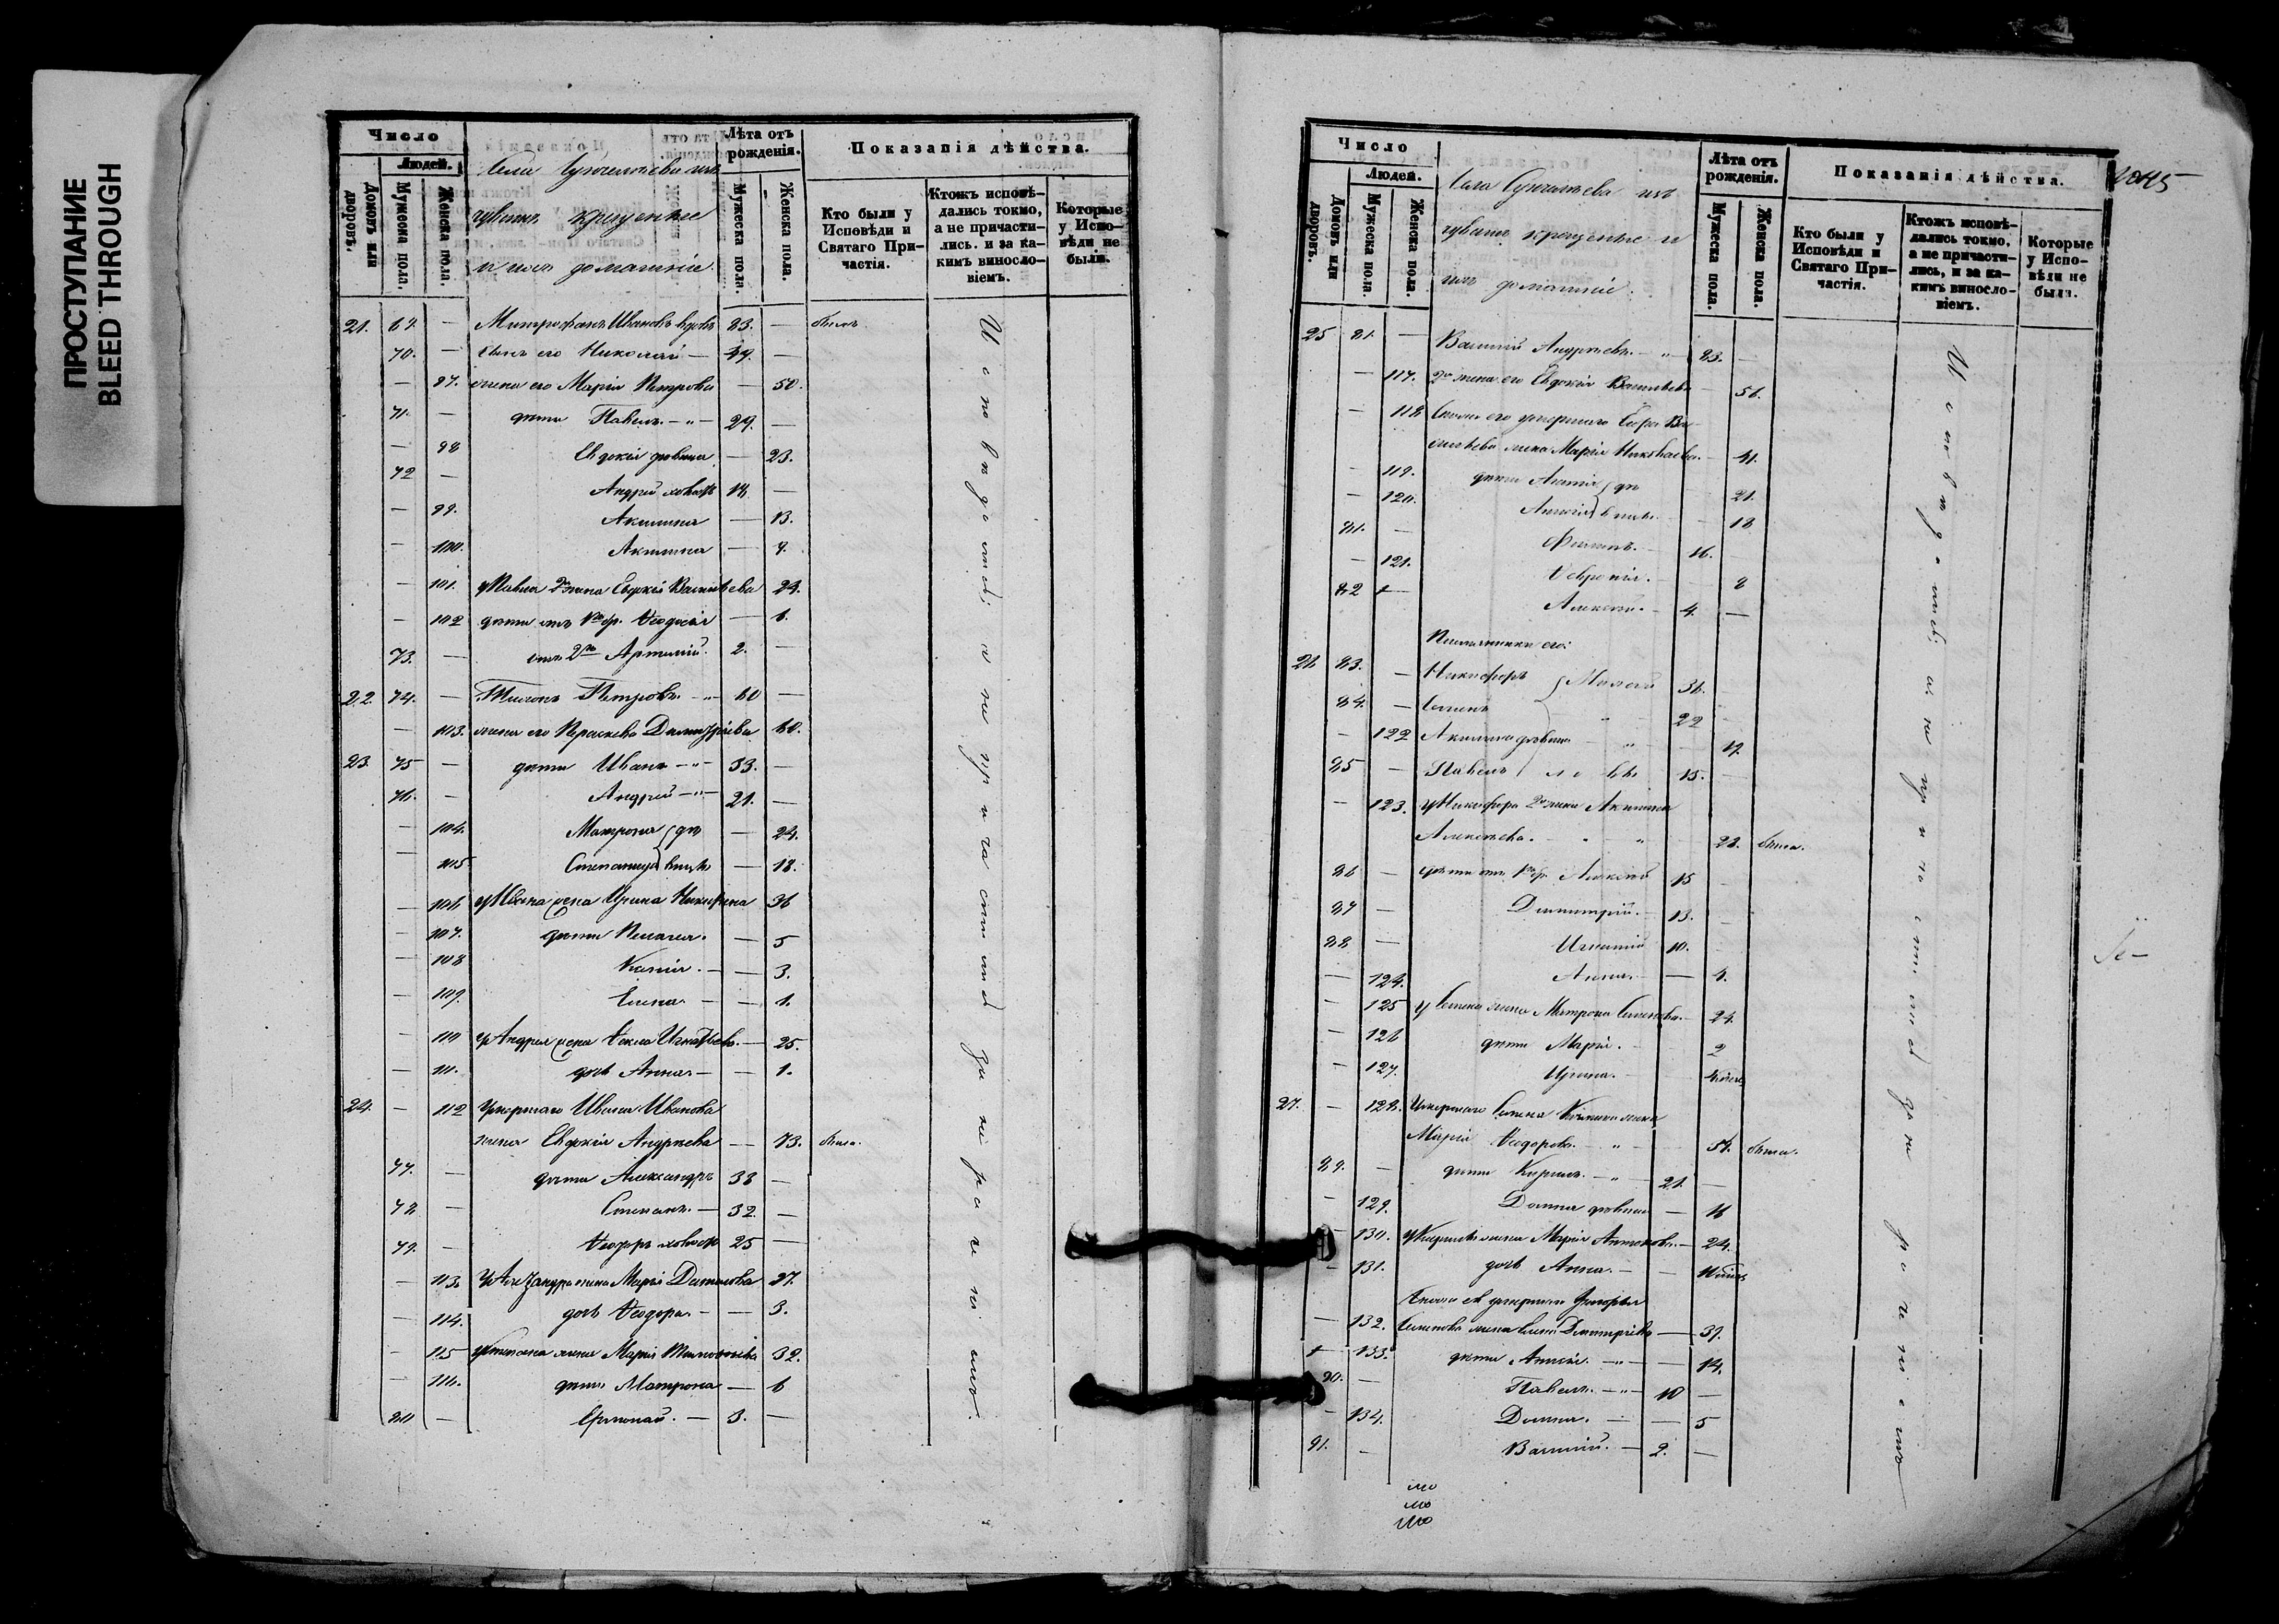 ПРОСТУПАНИЕ
BLEED THROUGH
Число
Людей.
Домовъ или дворовъ.
Мужеска пола.
Женска пола.
Села
изъ
чувашъ крещеные
и ихъ домашніе.
Лѣта отъ рожденія.
Мужеска пола.
Женска пола.
Показанія дѣйства.
Кто были у Исповѣди и Святаго Причастія.
Ктожъ исповѣдались токмо, а не причастились. и за какимъ винословіемъ.
Которые у Исповѣди не были.
21. 69. — Митрофанъ Ивановъ вдовъ 83. — былъ
70. — сынъ его Николай — 49. —
— 97. жена его Марія Петрова — 50.
71. — дѣти Павелъ — " — 29. —
— 98 Евдокія дѣвица — 23.
72 — Андрей холостъ 18. —
— 99. Акилина — 13.
— 100. Акилина — 9.
— 101. у Павла 2я жена Евдокія Васильева 24.
— 102 дѣти отъ 1го бр. Ѳеодосія — 6.
73. — отъ 2го Артемій. 2. —
22. 74. — Тихонъ Петровъ. — " 60 —
— 103. жена его Параскева Димитріева 60.
23. 75 — дѣти Иванъ — " — 33. —
76. — Андрей — " — 21. —
— 104. Матрона дѣ — 24.
— 105 Степанида вицы — 18.
— 106 у Ивана жена Ирина Никитина 36
— 107. дѣти Пелагія. — 5
— 108 Ксенія. — — 3.
— 109. Елена — — 1.
— 110 у Андрея жена Ѳекла Игнатьева. — 25.
— 111. дочь Анна — — 1.
24. — 112 Умершаго Ивана Иванова
жена Евдокія Андреева — 73. была.
77. — дѣти Александръ 38 —
78 — Степанъ. — 32. —
79. — Ѳеодоръ холостъ 25 —
— 113. у Александра жена Марія 27.
— 114. дочь Ѳеодора — — 3.
— 115 у Степана жена Марія Тимофеева 32.
— 116. дѣти Матрона — 6
80 — Ермолай. — 3. —
Исповѣдались, а не причастились за нераченіемъ.
Число
Людей.
Домовъ или дворовъ.
Мужеска пола.
Женска пола.
Села
изъ
чувашъ крещеные и
ихъ домашніе.
Лѣта отъ рожденія.
Мужеска пола.
Женска пола.
Показанія дѣйства.
Кто были у Исповѣди и Святаго Причастія.
Ктожъ исповѣдались токмо, а не причастились, и за какимъ винословіемъ.
Которые у Исповѣди не были.
25 81. — Василій Андреевъ. — " 83. —
— 117. 2я жена его Евдокія Васильева 56.
— 118 Снохи его умершаго Ва-
сильева жена Марія Николаева. — 41.
— 119. дѣти дѣ 21.
— 120. вицы. — 18
81. — Филипъ. — 16.
— 121. Ѳевронія. — 8
82 — Алексѣй. — 4. —
Племянники его:
26 83. — Никифоръ 36.
84. — Семенъ " 22
— 122 Акилина дѣвица — " — 19.
85 — Павелъ 15. —
— 123. у Никифора 2я жена Акилина
Алексѣева. — " 28. была.
86 — дѣти отъ 1го бр. Алексѣй 15
87 — Димитрій. — 13. —
88 — Игнатій 10. —
— 124. Анна. — 4.
— 125 у Семена жена Матрона Семенова. — 24.
— 126 дѣти Марія. — 2
— 127. Ирина. —
27. — 128. Умершаго Семена жена
Марія Ѳеодорова. — " — 59. была.
89. — дѣти Кирилъ. — " — 21. —
— 129. Домна дѣвица — 16
— 130. у Кирилы жена Марія Антонова. — 24.
— 131. дочь Анна. —
Снохи ея умершаго Григорья
— 132. Семенова жена Димитріева — 39.
— 133. дѣти — " — 14.
90. — Павелъ. — " — 10 —
— 134. Домна. — — 5
91. — Василій. — 2. —
Исповѣдались, а не причастились за нераченіемъ